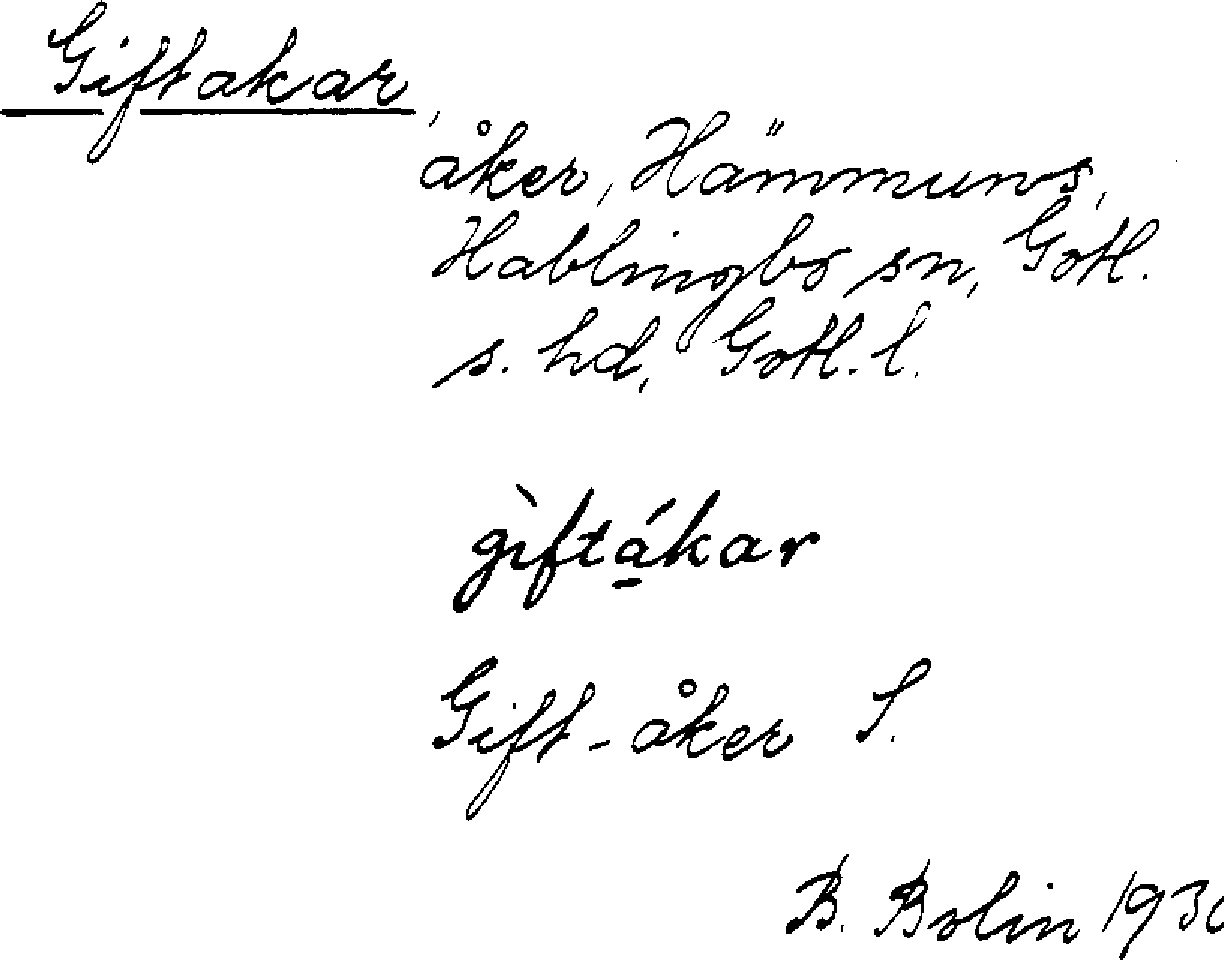 Giftakar,
åker, Hämmuns,
Hablingbo sn, Gotl.
s. hd, Gotl. l.
gìftá̱kar
Gift-åker S.
B. Bolin 1930